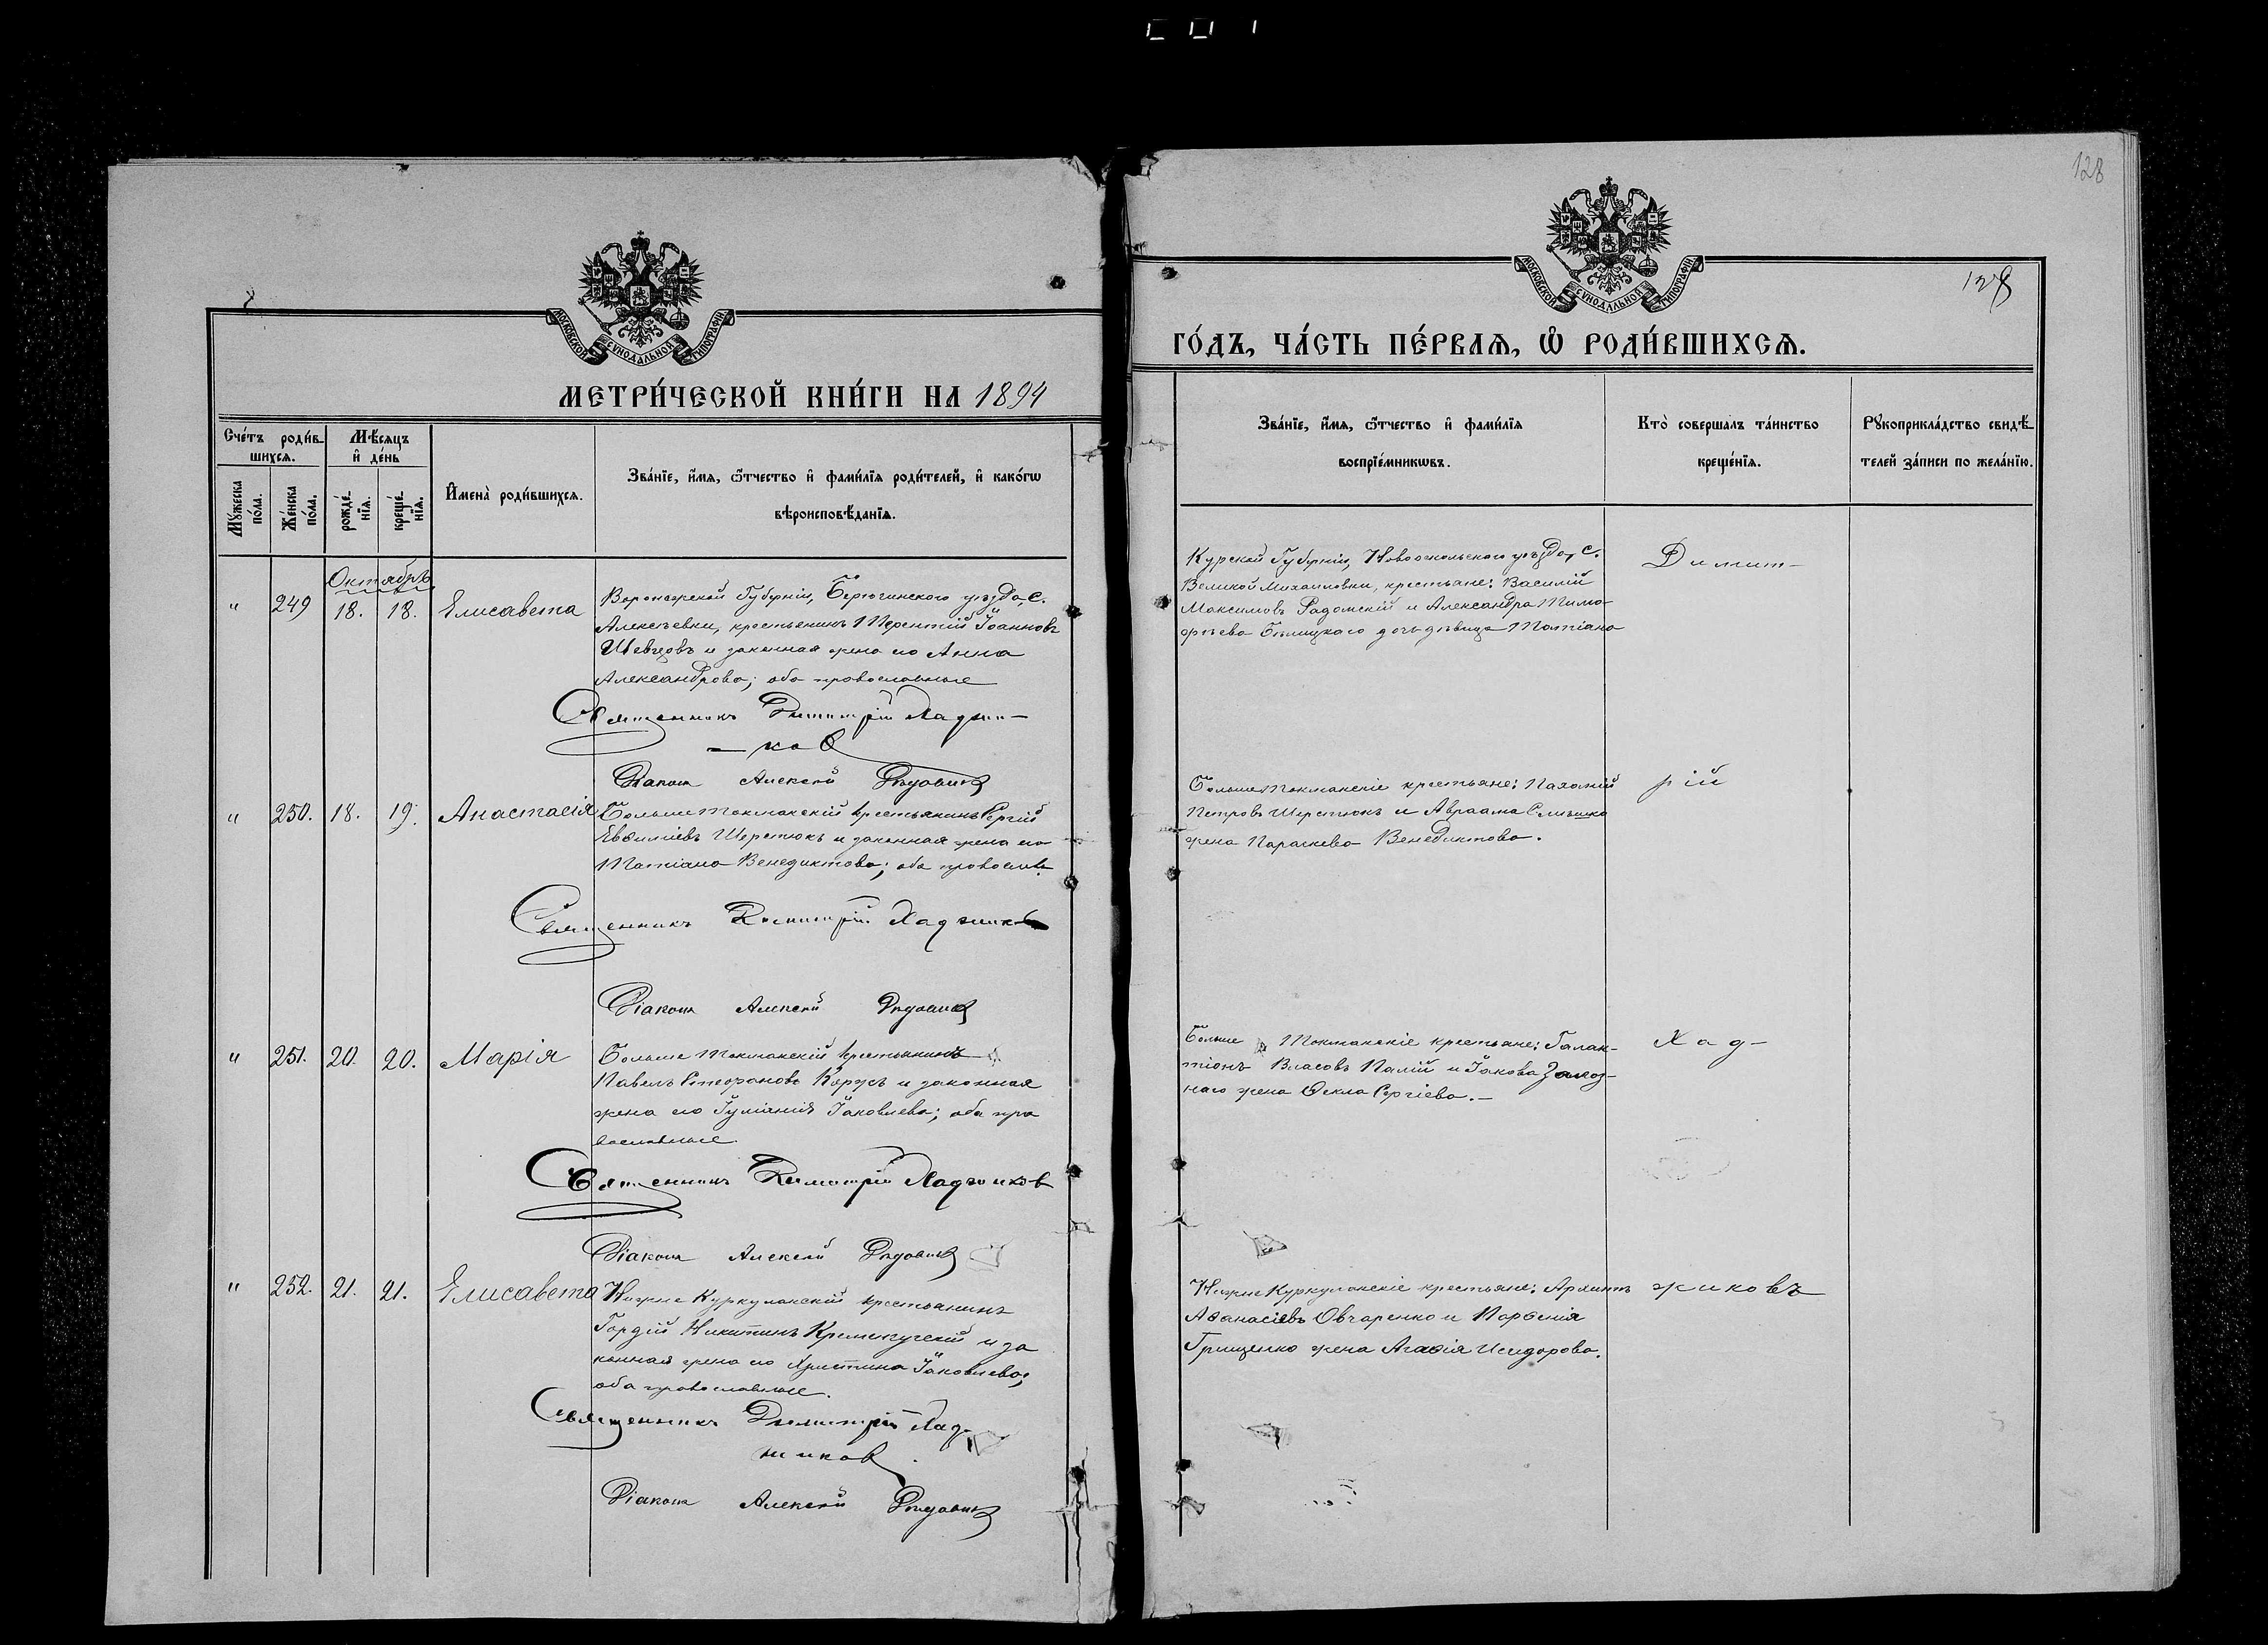 128
МОСКОВСКОЙ СУНОДАЛЬНОЙ ТИПОГРАФІИ
МЕТРИ́ЧЕСКОЙ КНИ́ГИ НА 1894
Сче́тъ роди́в-
шихсѧ.
Мѣ́сѧцъ
и҆ де́нь
Мꙋ́жеска
по́ла.
Же́нска
по́ла.
рожде́-
нїѧ.
креще́-
нїѧ.
И҆мена̀ роди́вшихсѧ.
Зва́нїе, и҆́мѧ, ѻ҆́тчество и҆ фами́лїѧ роди́телей, и҆ како́гѡ
вѣроисповѣ́данїѧ.
Октябрь
" 249 18. 18. Елисавета
Воронежской Губерніи, Бирючинского уѣзда, с.
Алексѣевки, крестьянинъ Терентій Іоанновъ
Шевцовъ и законная жена его Анна
Александрова; оба православные
Священникъ Димитрій Хаджи-
-ков
Діаконъ Алексѣй
" 250. 18. 19. Анастасія
Больше Токмакскій крестьянинъ Сергій
Евѳиміевъ Шерстюкъ и законная жена его
Татіана Венедиктова; оба православ.
Священникъ Димитрій Хаджиков
Діаконъ Алексѣй
" 251. 20. 20. Марія
Больше Токмакскій крестьянинъ
Павелъ Стефановъ Корусь и законная
жена его Іуліанія Іаковлева; оба пра
вославные.
Священникъ Димитрій Хаджиков
Діаконъ Алексѣй
" 252. 21. 21. Елисавета
Нижне Куркулакскій крестьянинъ
Гордій Никитинъ Кременчугскій и за
конная жена его Христина Іаковлева;
оба православные.
Священникъ Димитрій Хад-
жиков
Діаконъ Алексѣй
МОСКОВСКОЙ СУНОДАЛЬНОЙ ТИПОГРАФІИ
128
ГО́ДЪ, ЧА́СТЬ ПЕ́РВАѦ, Ѡ҆ РОДИ́ВШИХСѦ.
Зва́нїе, и҆́мѧ, ѻ҆́тчество и҆ фами́лїѧ
воспрїе́мникѡвъ.
Кто̀ соверша́лъ та́инство
креще́нїѧ.
Рꙋкоприкла́дство свидѣ́-
телей за́писи по жела́нїю.
Курской Губерніи, Новооскольского уѣзда, с.
Великой Михайловки, крестьяне: Василій
Максимовъ Радомскій и Александра Тимо-
фѣева Бѣлицкаго дочь дѣвица Татіана
Димит-
Больше Токмакскіе крестьяне: Пахомій
Петровъ Шерстюкъ и Авраама Слѣпшко
жена Параскева Венедиктова.
рій
Больше Токмакскіе крестьяне: Галак-
тіонъ Власовъ Палій и Іакова Залоз-
наго жена Ѳекла Сергіева.-
Хад-
Нижне Куркулакскіе крестьяне: Архипъ
Аѳанасіевъ Овчаренко и Парѳенія
Грищенко жена Агаѳія Исидорова.
жиковъ